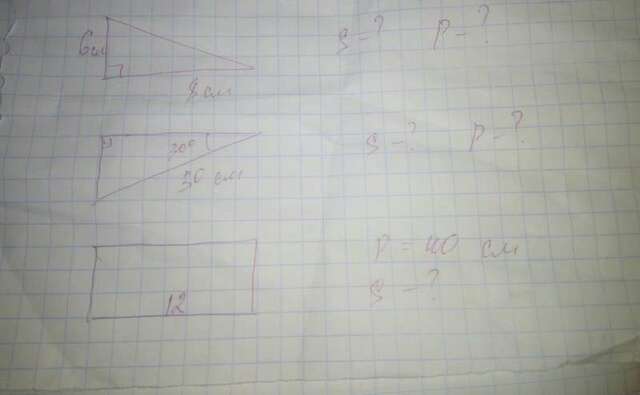 6см S-? P-?
8 см
30° S-? P-?
50 см
P = 40 см
12 S-?